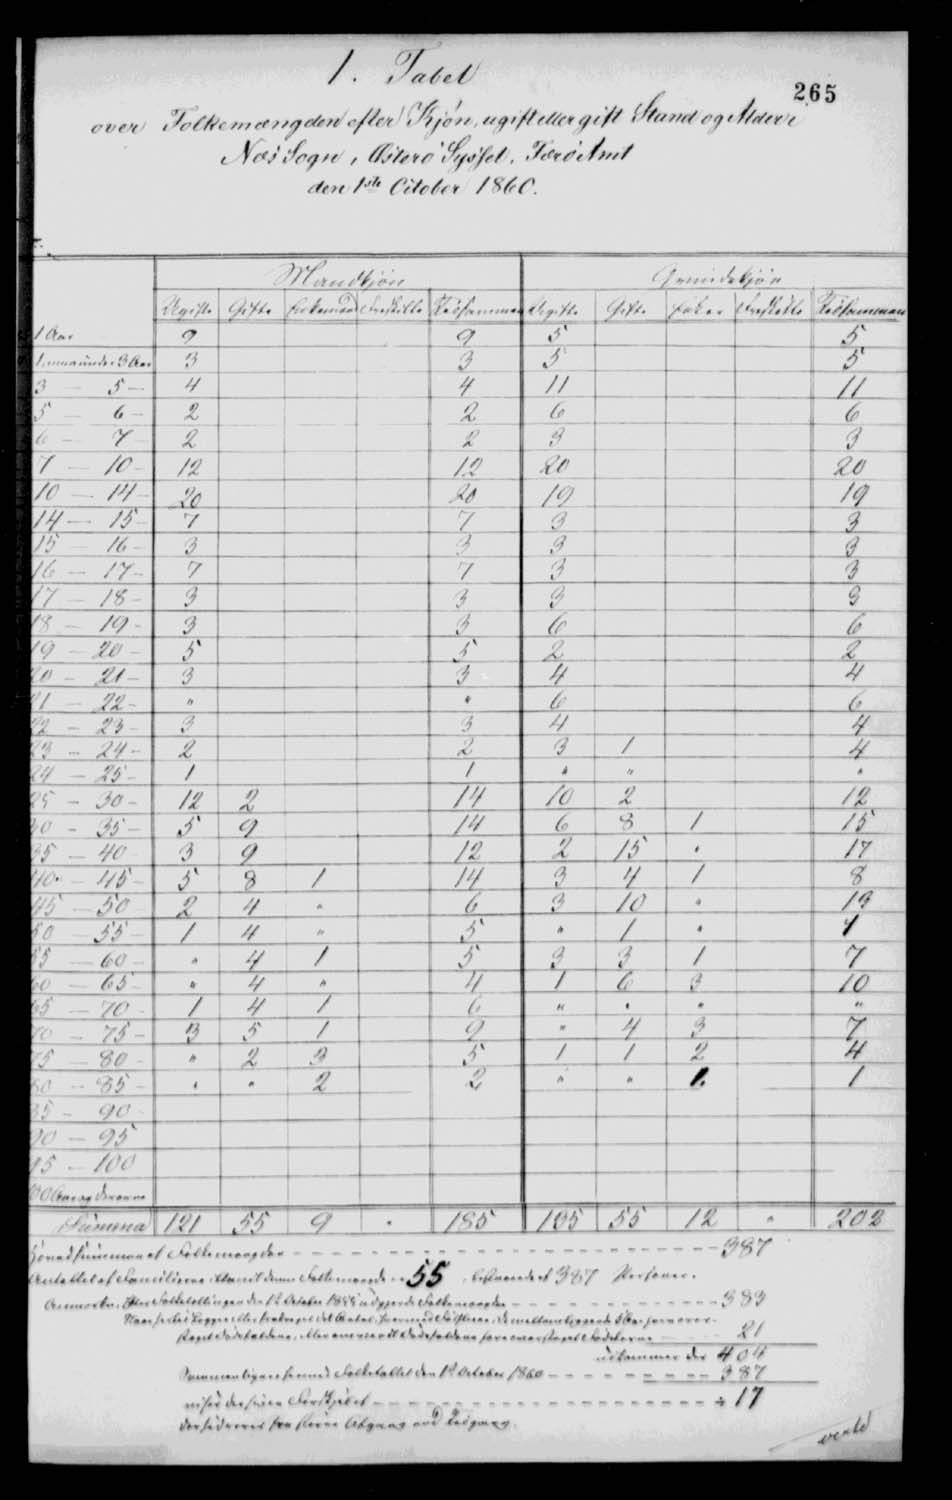 265
1. Tabel
over Folkemængden efter Kjøn, ugift eller gift Stand og Alder i
Næs Sogn, Østerø Syssel, Færø Amt
den 1ste October 1860.
Mandkjøn Qvindekjøn
Ugifte Gifte Enkemænd Fraskilte Tilsammen Ugifte Gifte Enker Fraskilte Tilsammen
1 Aar 9 9 5 5
1 3 Aar 3 3 5 5
3 — 5 — 4 4 11 11
5 — 6 — 2 2 6 6
6 — 7 — 2 2 3 3
7 — 10 — 12 12 20 20
10 — 14 — 20 20 19 19
14 — 15 — 7 7 3 3
15 — 16 — 3 3 3 3
16 — 17 — 7 7 3 3
17 — 18 — 3 3 3 3
18 — 19 — 3 3 6 6
19 — 20 — 5 5 2 2
20 — 21 — 3 3 4 4
21 — 22 — " " 6 6
22 — 23 — 3 3 4 4
23 — 24 — 2 2 3 1 4
24 — 25 — 1 1 " " "
25 — 30 — 12 2 14 10 2 12
30 — 35 — 5 9 14 6 8 1 15
35 — 40 3 9 12 2 15 " 17
40 — 45 — 5 8 1 14 3 4 1 8
45 — 50 2 4 " 6 3 10 " 13
50 — 55 — 1 4 " 5 " 1 " 1
55 — 60 — " 4 1 5 3 3 1 7
60 — 65 — " 4 " 4 1 6 3 10
65 — 70 — 1 4 1 6 " " " "
70 — 75 — 3 5 1 9 " 4 3 7
75 — 80 — " 2 3 5 1 1 2 4
80 — 85 — " " 2 2 " " 1 1
85 — 90 —
90 — 95
95 — 100
100 Aar og derover
Summa 121 55 9 " 185 135 55 12 " 202
Hovedsummen af Folkemængden 387
Antallet af Familierne blandt denne Folkemængde er 55, bestaaende af 387 Personer.
Anmærkn. Efter Folketællingen den 1ste October 1855 udgjorde Folkemængden 383
21
udkommer der 404
Sammenlignes hermed Folketallet den 1ste October 1860 387
viser der sig en Forskjel af ÷ 17
der hidrører fra større Afgang end Tilgang.
vertd